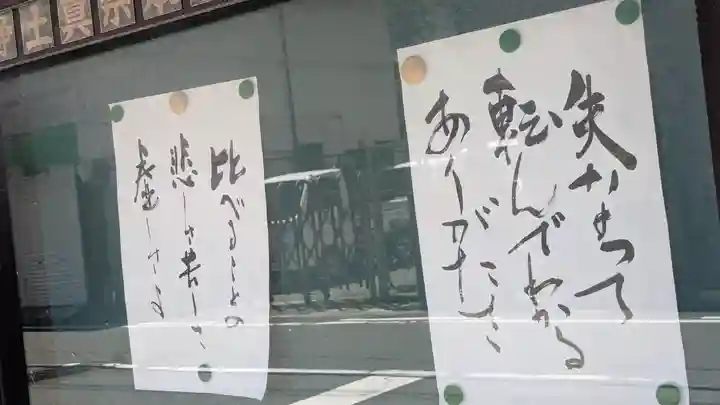 土真宗
失なって
転んでわかる
ありがたさ
比べることの
悲しさ苦しさ
虚しさ